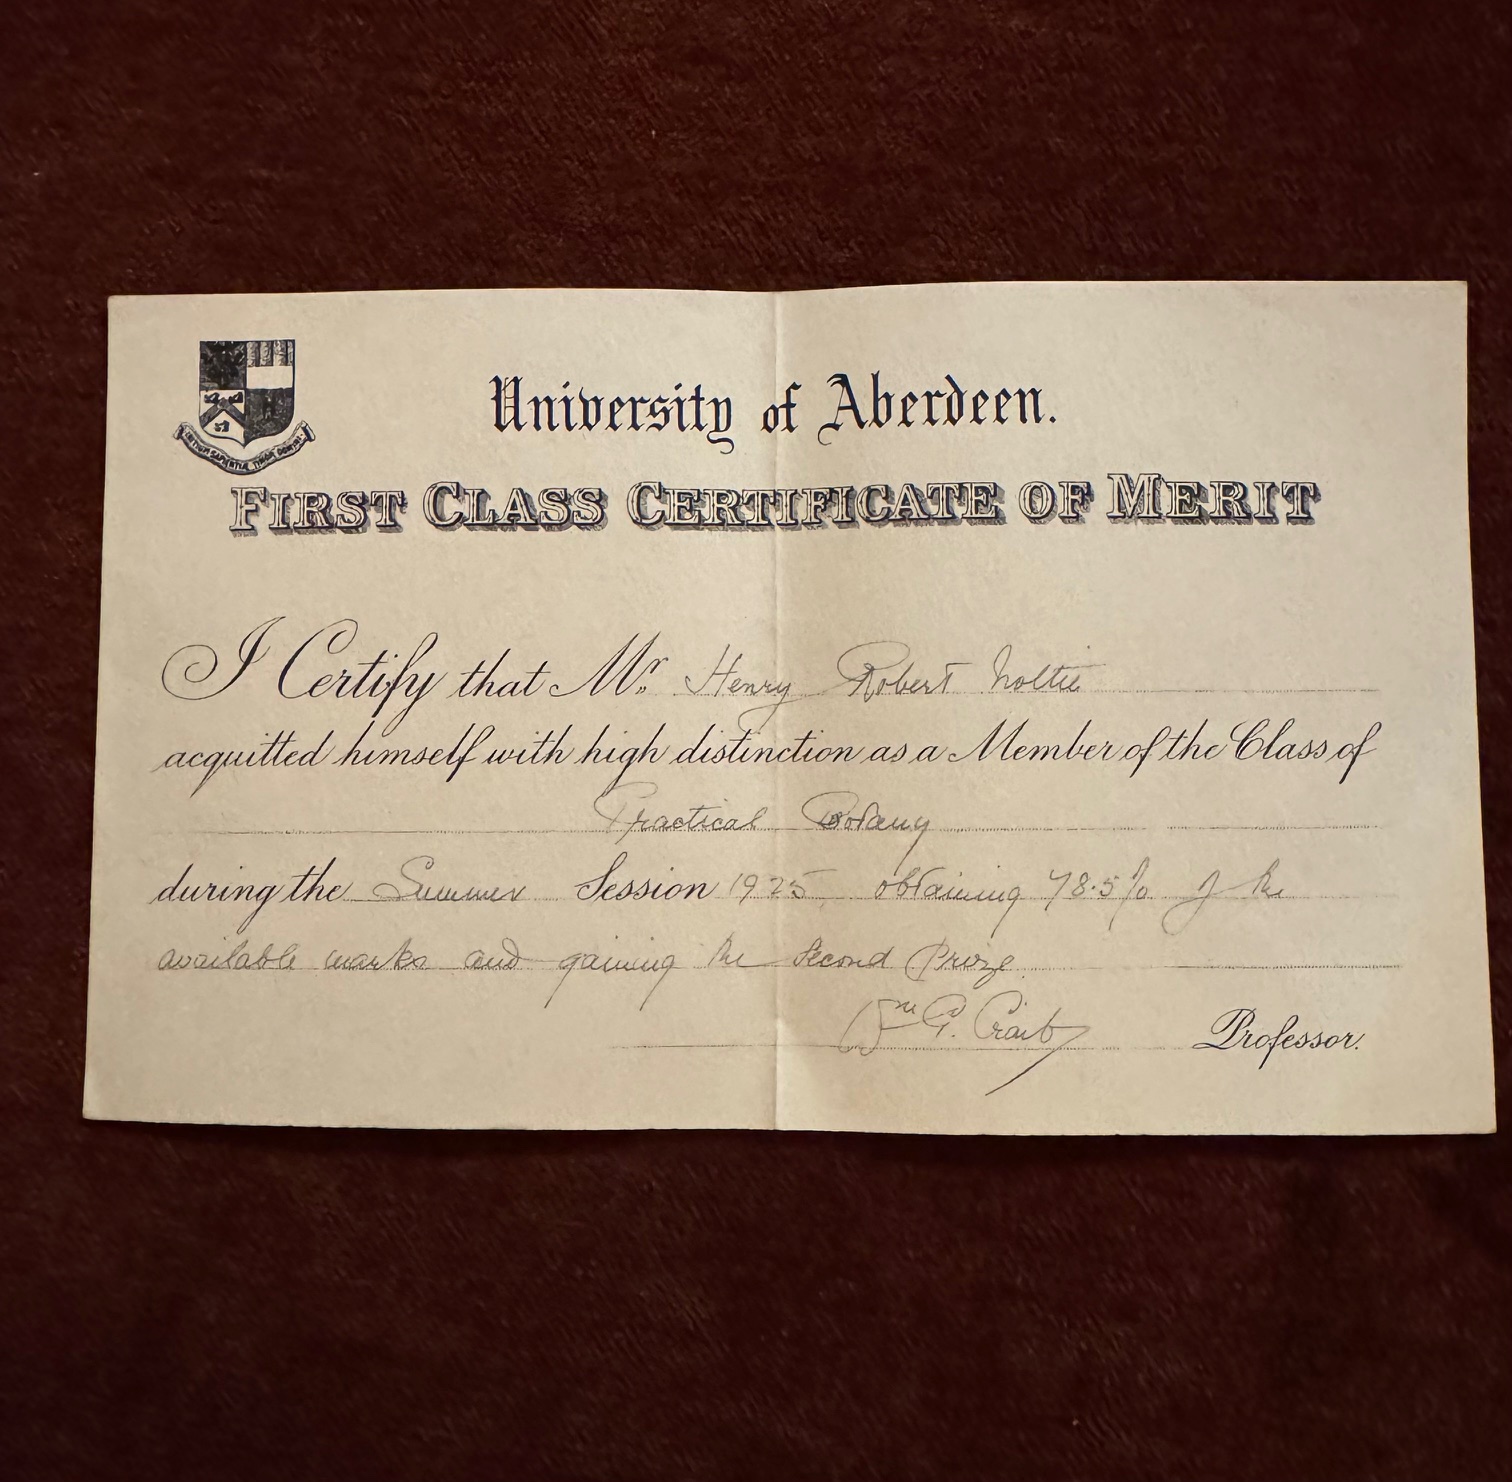 INITIUM SAPIENTIÆ TIMOR DOMINI
University of Aberdeen.
FIRST CLASS CERTIFICATE OF MERIT
I Certify that Mr. Henry Robert Noltie
acquitted himself with high distinction as a Member of the Class of
Practical Botany
during the Summer Session 1925, obtaining 78.5% of the
available marks and gaining the Second Prize.
Wm G. Craib Professor.